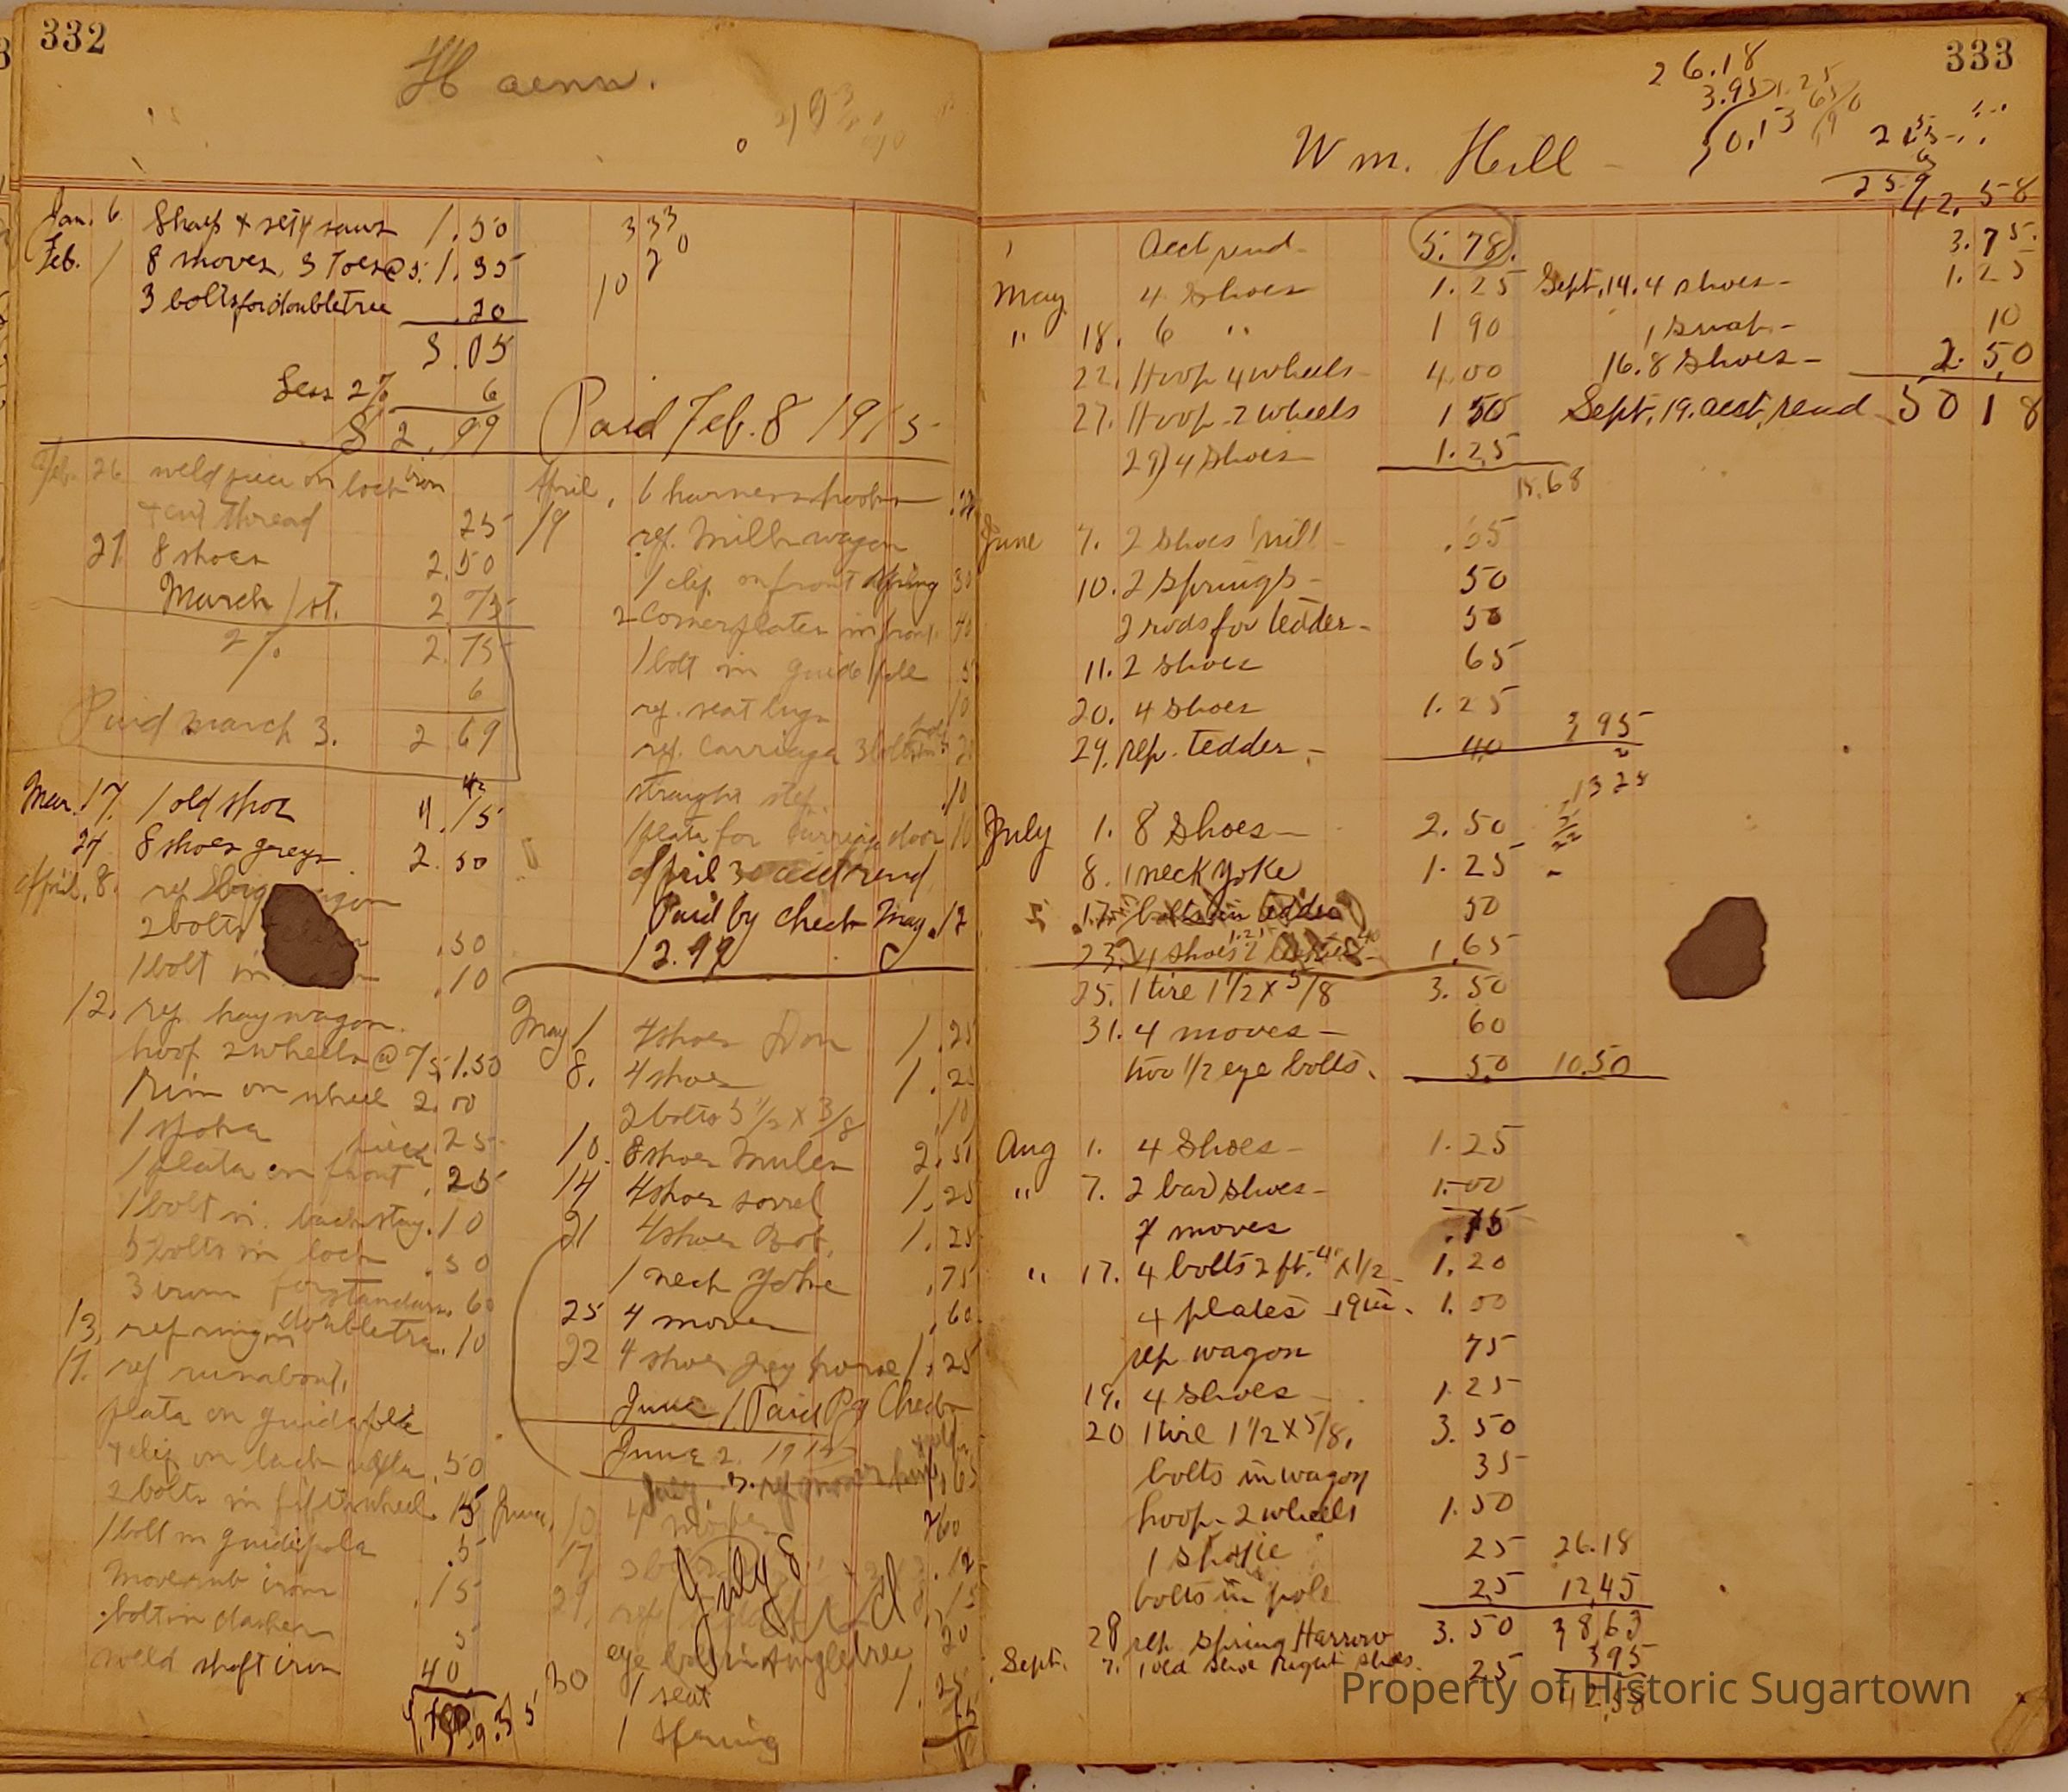 332
Haenn.
Jan. 6 Sharp & set 4 saws 1.50
Feb. 1 8 moves, 3 Toes @ 5. 1.35
3 bolts for doubletree .20
3.05
Less 2% 6
$ 2.99
333
20
10
Paid Feb. 8 1915
Feb. 26 weld piece on lock iron
& cut thread 25
27 8 shoes 2.50
March 1st. 2.75
2% 2.75
6
Paid march 3. 2 69
Mar. 17. 1 old shoe .15
24 8 shoes greys 2.50
April. 8. rep
2 bolts .50
1 bolt in .10
12. rep. hay wagon.
hoop 2 wheels @ 75 1.50
1 rim on wheel 2.00
1 spoke .25
1 plate on front piece .25
1 bolt in back stay .10
5 bolts in lock .50
3 irons for standard 60
13, rep ring in doubletree .10
17. rep runabout,
plate on guidepole
& clip on back axle .50
2 bolts in fifth wheel .15
1 bolt in guidepole .5
Move rub iron .15
bolt in dasher 5
weld shaft iron 40
April, 6 harness hooks
19 rep. Milk wagon
1 clip on front spring 30
2 Corner plates in front 40
1 bolt in guide pole 5
rep. seat lugs 10
rep. Carriage 3 bolts
straight step. .10
1 plate for carriage door 10
April 30 acct rend
Paid by Check May. 12
12.99
May 1 4 shoes Don 1.25
8. 4 shoes 1.2
2 bolts 5 1/2 x 3/8 10
10. 8 shoes Mules 2.5
14 4 shoes sorrel 1.25
21 4 shoes Bob. 1.25
1 neck yoke .75
25 4 moves .60
22 4 shoes grey horse 1.25
June 1. Paid By Check
June 2. 1915
June, 10 4 moves 60
17
July 8
29, rep
eye bolt in singletree 20
30 1 seat 1.25
1 Spring
333
Wm. Hill -
26.18
3.95
42.58
3.75
Acct rend- 5.78.
May 4 Shoes 1.25
" 18. 6 " 1 90
22. Hoop 4 wheels 4.00
27. Hoop - 2 wheels 1 50
29) 4 Shoes 1.25
15.68
Sept. 14. 4 shoes - 1.25
1 snap - 10
16. 8 shoes - 2.50
Sept. 19. acct. rend 50 18
June 7. 2 shoes .65
10. 2 springs - 50
2 rods for tedder - 50
11. 2 shoes 65
20. 4 shoes 1.25
29. rep. tedder - 40 3 95
July 1. 8 Shoes - 2.50
8. 1 neck yoke 1.25 -
17. bolts in tedder 50
23. 4 shoes 1.65
25. 1 tire 1 1/2 x 5/8 3.50
31. 4 moves - 60
two 1/2 eye bolts. 50 10.50
Aug 1. 4 Shoes - 1.25
" 7. 2 bar shoes - 1.00
moves .75
" 17. 4 bolts 2 ft. 4" x 1/2 - 1.20
4 plates 19 in. 1.00
rep wagon 75
19. 4 shoes 1.25
20 1 tire 1 1/2 x 5/8. 3.50
bolts in wagon 35
hoop - 2 wheels 1.50
1 spoke 25 26.18
bolts in pole 25 12.45
28 rep. Spring Harrow 3.50 38.63
Sept. 7. 1 old shoe Right shoes. 25 3 95
42.58
Property of Historic Sugartown